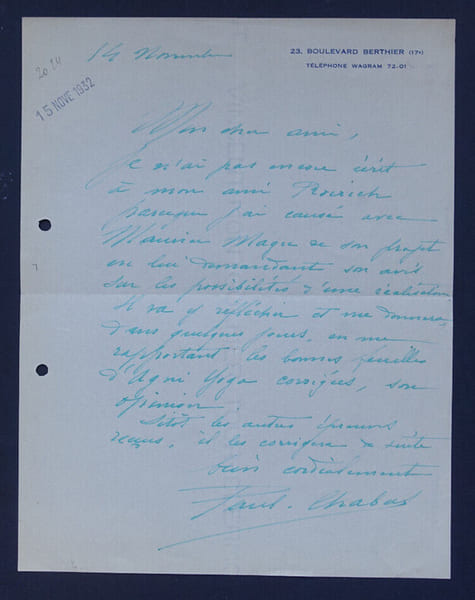 23. BOULEVARD BERTHIER (17e)
TÉLÉPHONE WAGRAM 72-01
14 Novembre
20 24
15 NOVE 1932
Mon cher ami,
Je n'ai pas encore écrit
à mon ami Roerich
parceque j'ai causé avec
Maurice Magre de son projet
en lui demandant son avis
sur les possibilités d'une réalisation
Il va y réfléchir et me donnera,
dans quelques jours, en me
rapportant les bonnes feuilles
d'Agni Yoga corrigées, son
opinion.
Sitôt les autres épreuves
reçues, il les corrigera de suite
bien cordialement
Paul-Chabas